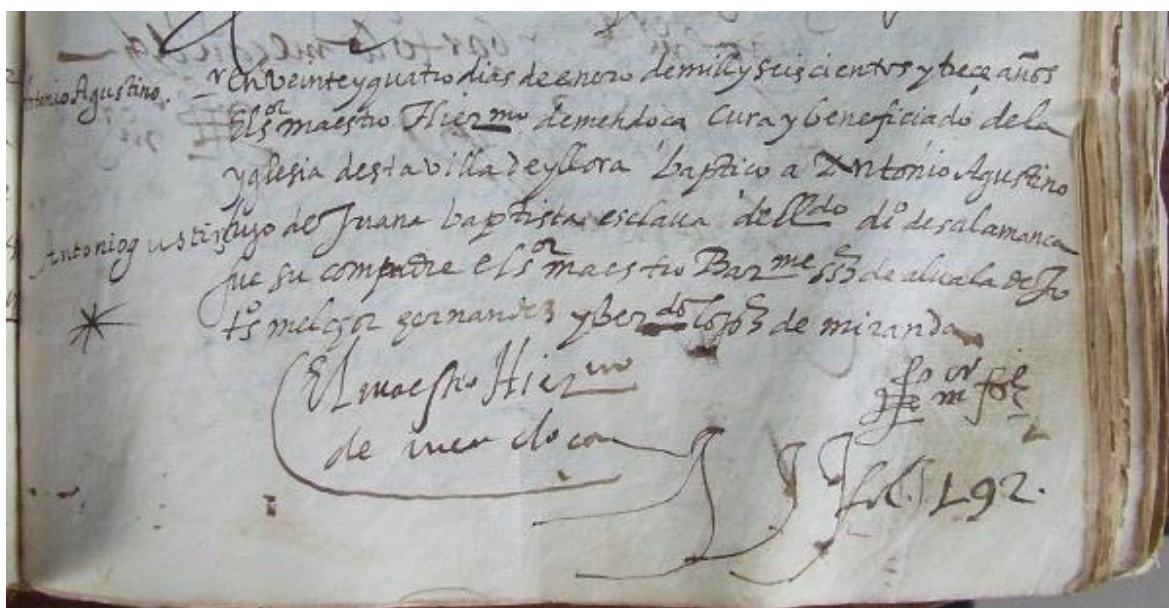 Antonio Agustino.
En veinte y quatro dias de enero de mill y seiscientos y trece años
El sor maestro Hiermo de mendoca Cura y beneficiado de la
yglesia desta villa de yllora baptico a Antonio Agustino
hijo de Juana baptista esclaua del lldo do de salamanca
Antonio gustin
fue su compadre el sor maestro Barme de alcala
tos melchor hernandez y Berdo de miranda
El maestro Hiermo
de mendoca
fol. 192.